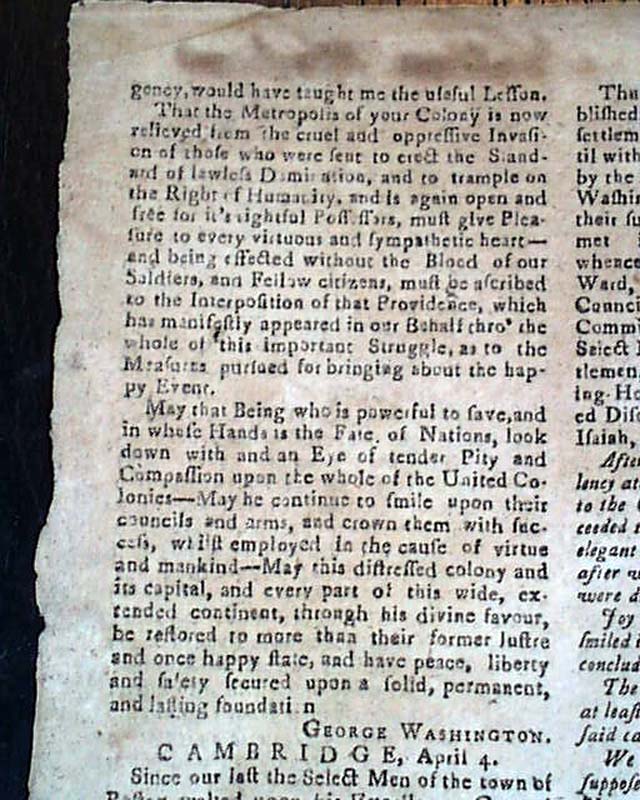 gency, would have taught me the uſeful Leſſon.
That the Metropolis of your Colony is now
relieved from the cruel and oppreſſive Invaſi-
on of thoſe who were ſent to erect the Stand-
ard of lawleſs Domination, and to trample on
the Right of Humanity, and is again open and
free for it's rightful Poſſeſſors, muſt give Plea-
ſure to every virtuous and ſympathetic heart—
and being effected without the Blood of our
Soldiers, and Fellow citizens, muſt be aſcribed
to the Interpoſition of that Providence, which
has manifeſtly appeared in our Behalf thro' the
whole of this important Struggle, as to the
Meaſures purſued for bringing about the hap-
py Event.
May that Being who is powerful to ſave, and
in whoſe Hands is the Fate of Nations, look
down with and an Eye of tender Pity and
Compaſſion upon the whole of the United Co-
lonies—May he continue to ſmile upon their
councils and arms, and crown them with ſuc-
ceſs, whilſt employed in the cauſe of virtue
and mankind—May this diſtreſſed colony and
its capital, and every part of this wide, ex-
tended continent, through his divine favour,
be reſtored to more than their former luſtre
and once happy ſtate, and have peace, liberty
and ſafety ſecured upon a ſolid, permanent,
and laſting foundation
GEORGE WASHINGTON.
CAMBRIDGE, April 4.
Since our laſt the Select Men of the town of
Thu
bliſhed
ſettlem
til with
by the
Waſhin
their ſu
met
whence
Ward,
Counci
Comm
Select
tlemen
ing Ho
ed Diſc
Iſaiah,
After
lency at
to the
ceeded t
elegant
after w
were d
Joy
ſmiled i
conclud
The
at leaſt
ſaid ca
We
ſuppoſ